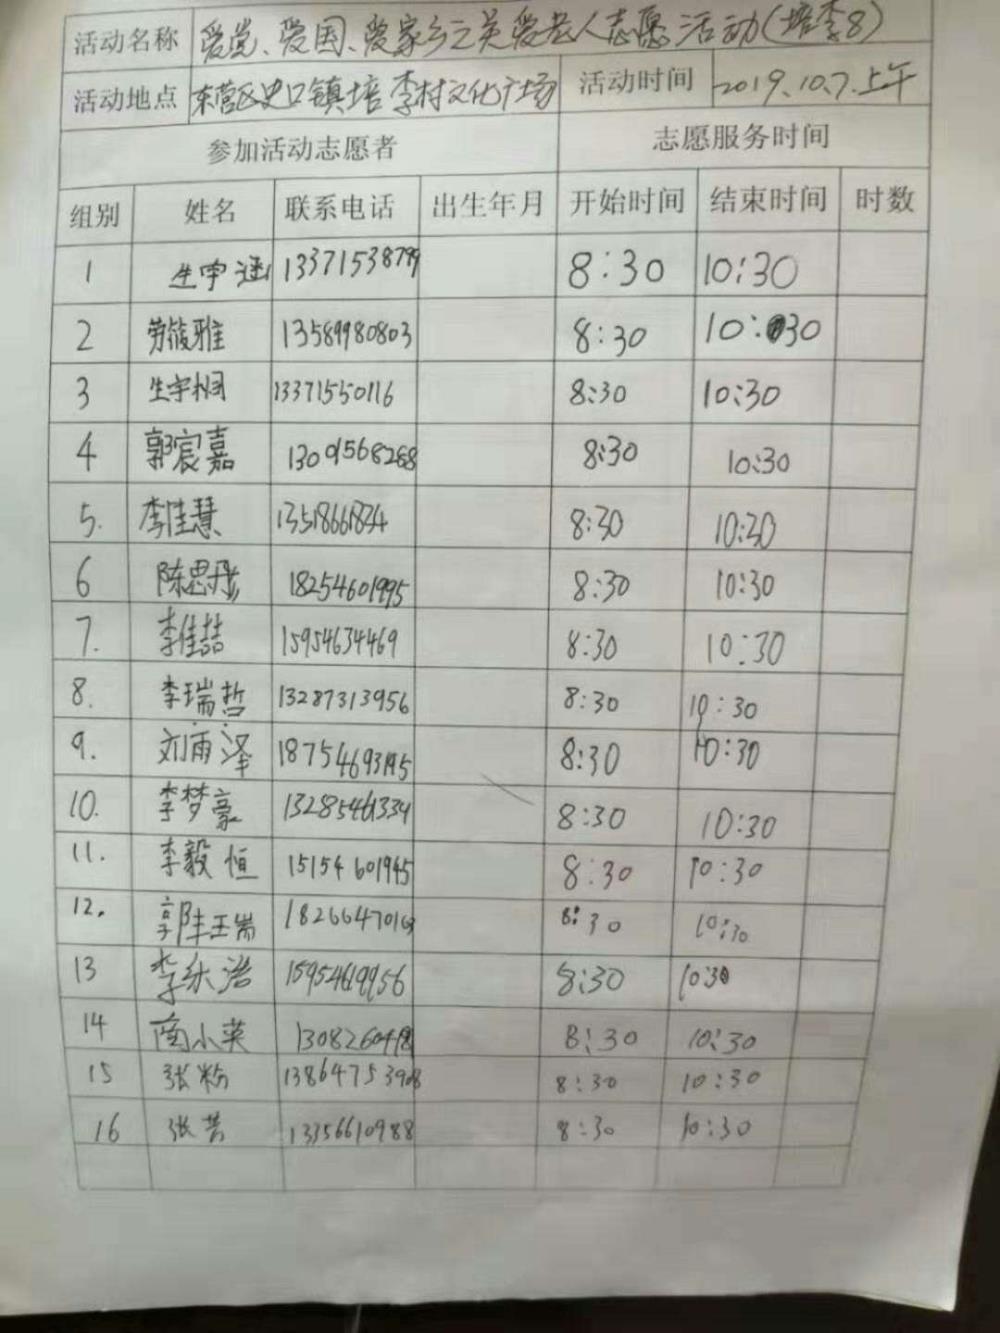 活动名称 爱党、爱国、爱家乡之关爱老人志愿活动(培李8)
活动地点 东营区史口镇培李村文化广场 活动时间 2019.10.7.上午
参加活动志愿者 志愿服务时间
组别 姓名 联系电话 出生年月 开始时间 结束时间 时数
1 生宇涵 8:30 10:30
2 劳筱雅 13589980803 8:30 10:30
3 生宇桐 13371550116 8:30 10:30
4 郭宸嘉 8:30 10:30
5. 李佳慧 13518661834 8:30 10:30
6 陈思彤 18254601995 8:30 10:30
7. 李佳喆 15954634469 8:30 10:30
8. 李瑞哲 13287313956 8:30 10:30
9. 刘雨泽 8:30 10:30
10. 李梦豪 13285461334 8:30 10:30
11. 李毅恒 15154601945 8:30 10:30
12. 8:30 10:30
13 李乐浩 8:30 10:30
14 商小英 8:30 10:30
15 张粉 8:30 10:30
16 张芸 13356610988 8:30 10:30